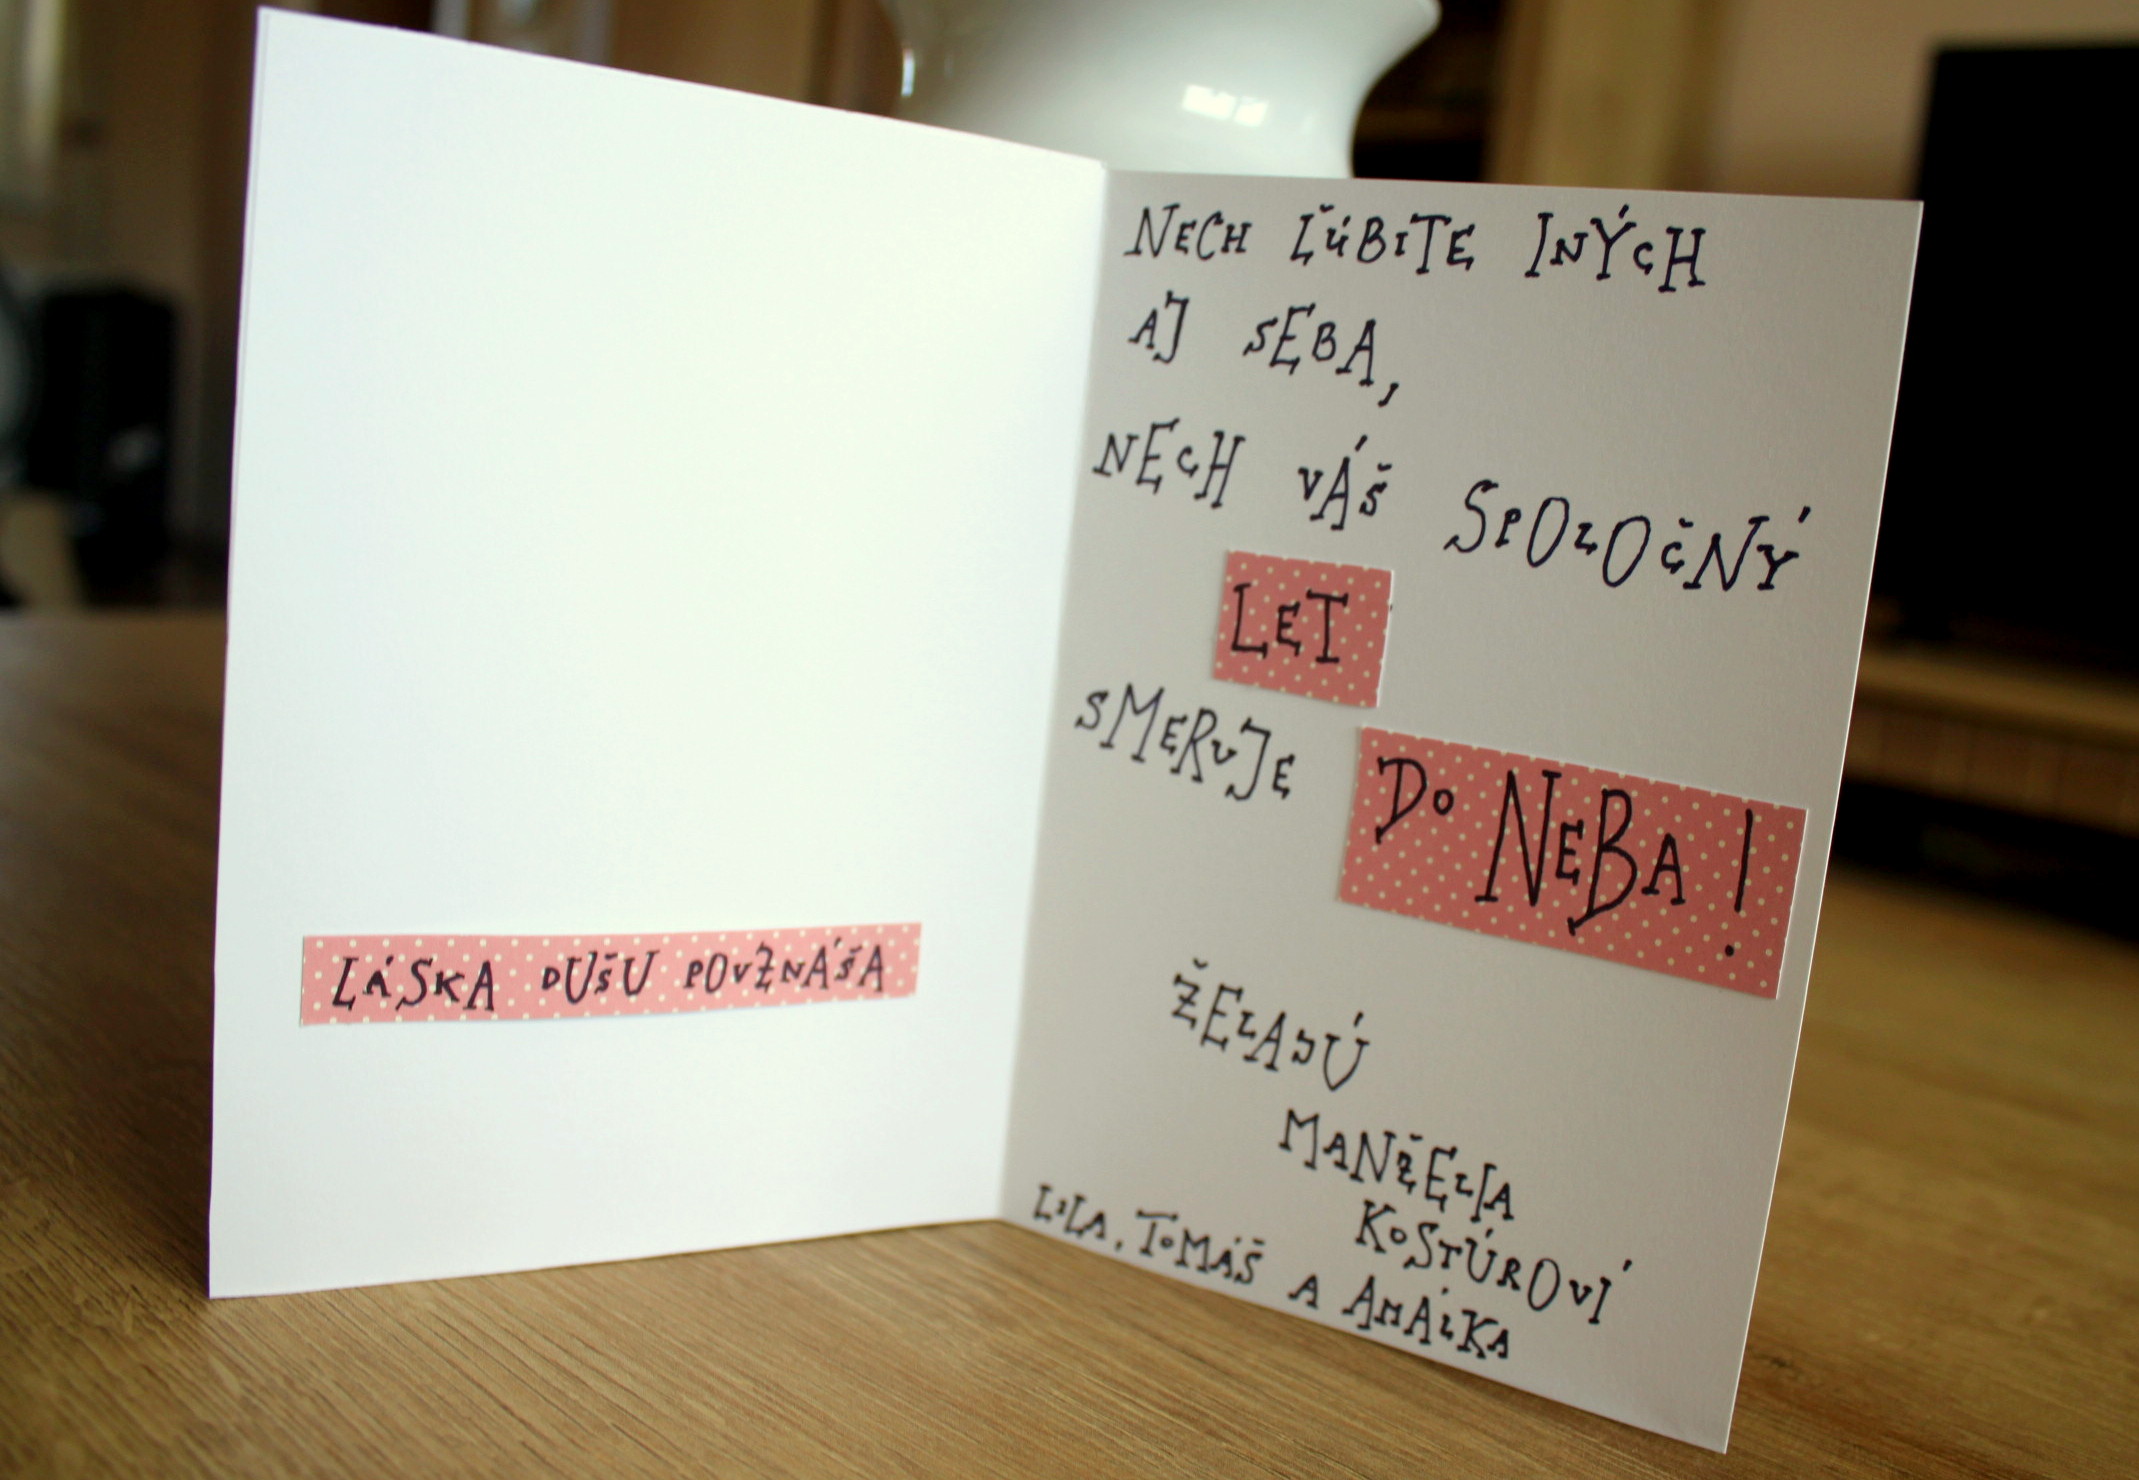 LÁSKA DUŠU POVZNÁŠA
NECH ĽÚBITE INÝCH
AJ SEBA,
NECH VÁŠ SPOLOČNÝ
LET
SMERUJE DO NEBA!
ŽELAJÚ
MANŽELIA
KOSTÚROVÍ
LILA, TOMÁŠ A AMÁLKA